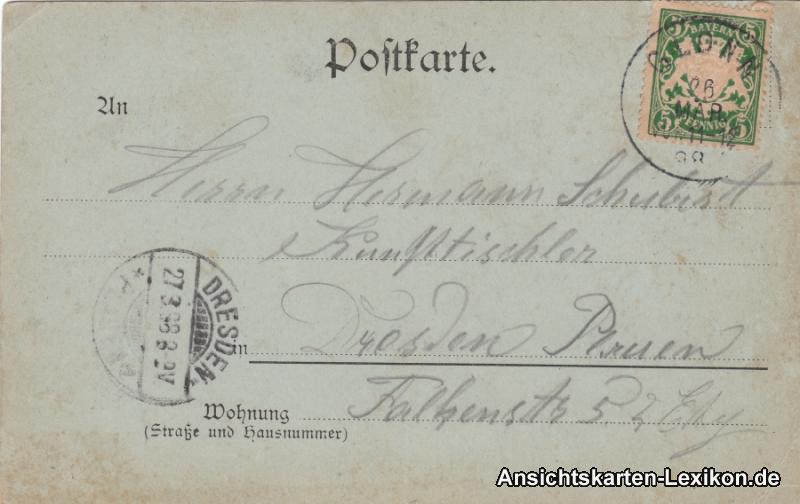 Postkarte.
BAYERN
5 5
5 PFENNIG 5
GLONN
26
MÄR.
98
An
Herrn Hermann Schubert
Kunsttischler
DRESDEN
27.3.98.8-9V
in Dresden Plauen
Wohnung Falkenstr 52
(Straße und Hausnummer)
Ansichtskarten-Lexikon.de